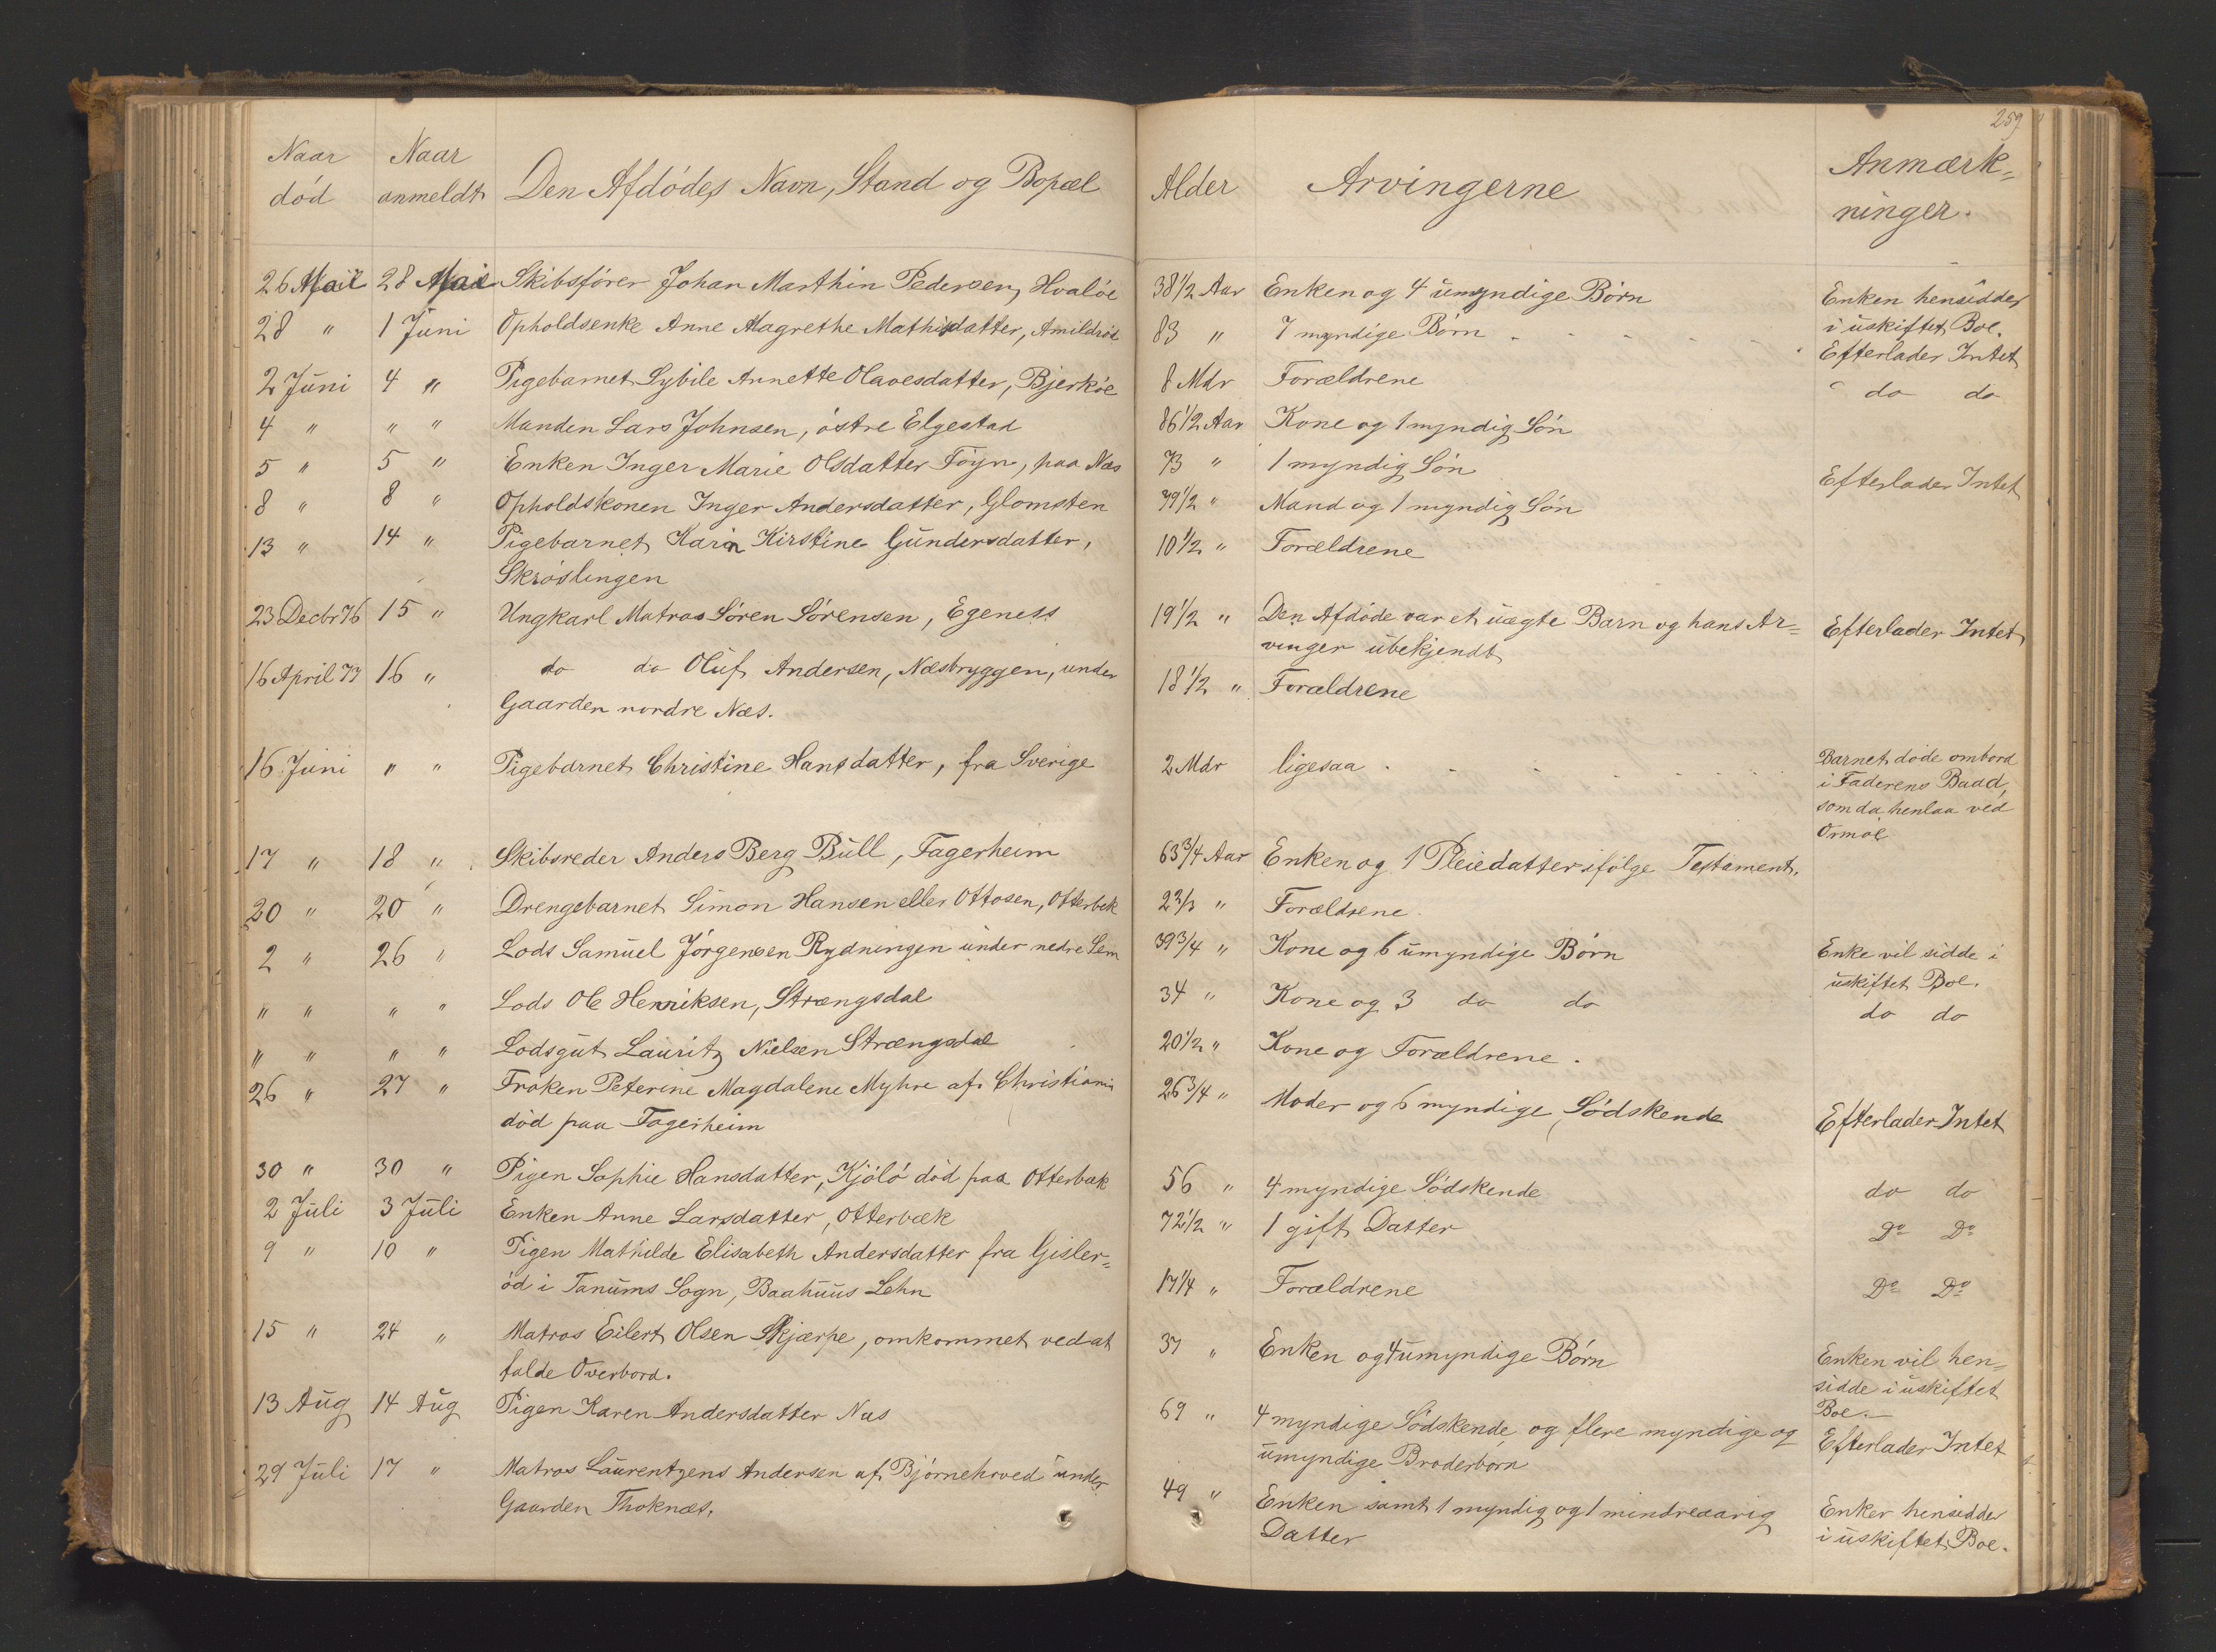 259
Naar død
Naar anmeldt
Den Afdødes Navn, Stand og Bopæl
Alder
Arvingerne
Anmærk=
ninger.
26 Mai 28 Mai Skibsfører Johan Marthin Pedersen, Hvaløe 38 1/2 Aar Enken og 4 umyndige Børn Enken hensidder
i uskiftet Boe.
28 " 1 Juni Opholdsenke Anne Magrethe Mathisdatter, Amildrød 83 " 7 myndige Børn Efterlader Intet
2 Juni 4 " Pigebarnet Sybile Annette Olavesdatter, Bjerkøe 8 Mdr Forældrene do do
4 " " " Manden Lars Johnsen, østre Elgestad 86 1/2 Aar Kone og 1 myndig Søn
5 " 5 " Enken Inger Marie Olsdatter Føyn, paa Næs 73 " 1 myndig Søn Efterlader Intet
8 " 8 " Opholdskonen Inger Andersdatter, Glomsten 79 1/2 " Mand og 1 myndig Søn
13 " 14 " Pigebarnet Karin Kirstine Gundersdatter, 10 1/2 " Forældrene
Skrøslingen
23 Decbr 76 15 " Ungkarl Matros Søren Sørensen, Egeness 19 1/2 " Den Afdøde var et uægte Barn og hans Ar= Efterlader Intet
vinger ubekjendt
16 April 77 16 " do do Oluf Andersen, Næsbryggen, under 18 1/2 " Forældrene
Gaarden nordre Næs.
16 Juni " " Pigebarnet Christine Hansdatter, fra Sverige 2 Mdr ligesaa Barnet døde ombord
i Faderens Baad,
som da henlaa ved
Ormøe
17 " 18 " Skibsreder Anders Berg Bull, Fagerheim 63 3/4 Aar Enken og 1 Pleiedatter ifølge Testament.
20 " 20 " Drengebarnet Simon Hansen eller Ottosen, Otterbek 2 2/3 " Forældrene
2 " 26 " Lods Samuel Jørgensen Rydningen under nedre Lem 39 3/4 " Kone og 6 umyndige Børn Enke vil sidde i
uskiftet Boe.
" " " " Lods Ole Henriksen, Strængsdal 34 " Kone og 3 do do do do
" " " " Lodsgut Lauritz Nielsen Strængsdal 20 1/2 " Kone og Forældrene.
26 " 27 " Frøken Peterine Magdalene Myhre af Christiania 26 3/4 " Moder og 6 myndige Sødskende Efterlader Intet
død paa Fagerheim
30 " 30 " Pigen Sophie Hansdatter, Kjøló død paa Otterbæk 56 " 4 myndige Sødskende do do
2 Juli 3 Juli Enken Anne Larsdatter, Otterbæk 72 1/2 " 1 gift Datter Do Do
9 " 10 " Pigen Mathilde Elisabeth Andersdatter fra Gisler=
ød i Tanums Sogn, Baahuus Lehn 17 1/4 " Forældrene Do Do
15 " 24 " Matros Eilert Olsen Skjærpe, omkommet ved at 37 " Enken og 4 umyndige Børn Enken vil hen=
falde Overbord. sidde i uskiftet
Boe.
13 Aug 14 Aug Pigen Karen Andersdatter Næs 69 " 4 myndige Sødskende og flere myndige og Efterlader Intet
umyndige Broderbørn
29 Juli 17 " Matros Laurentzens Andersen af Bjørnehoved under 49 " Enken samt 1 myndig og 1 mindreaarig Enken hensidder
Gaarden Thoknæs. Datter i uskiftet Boe.